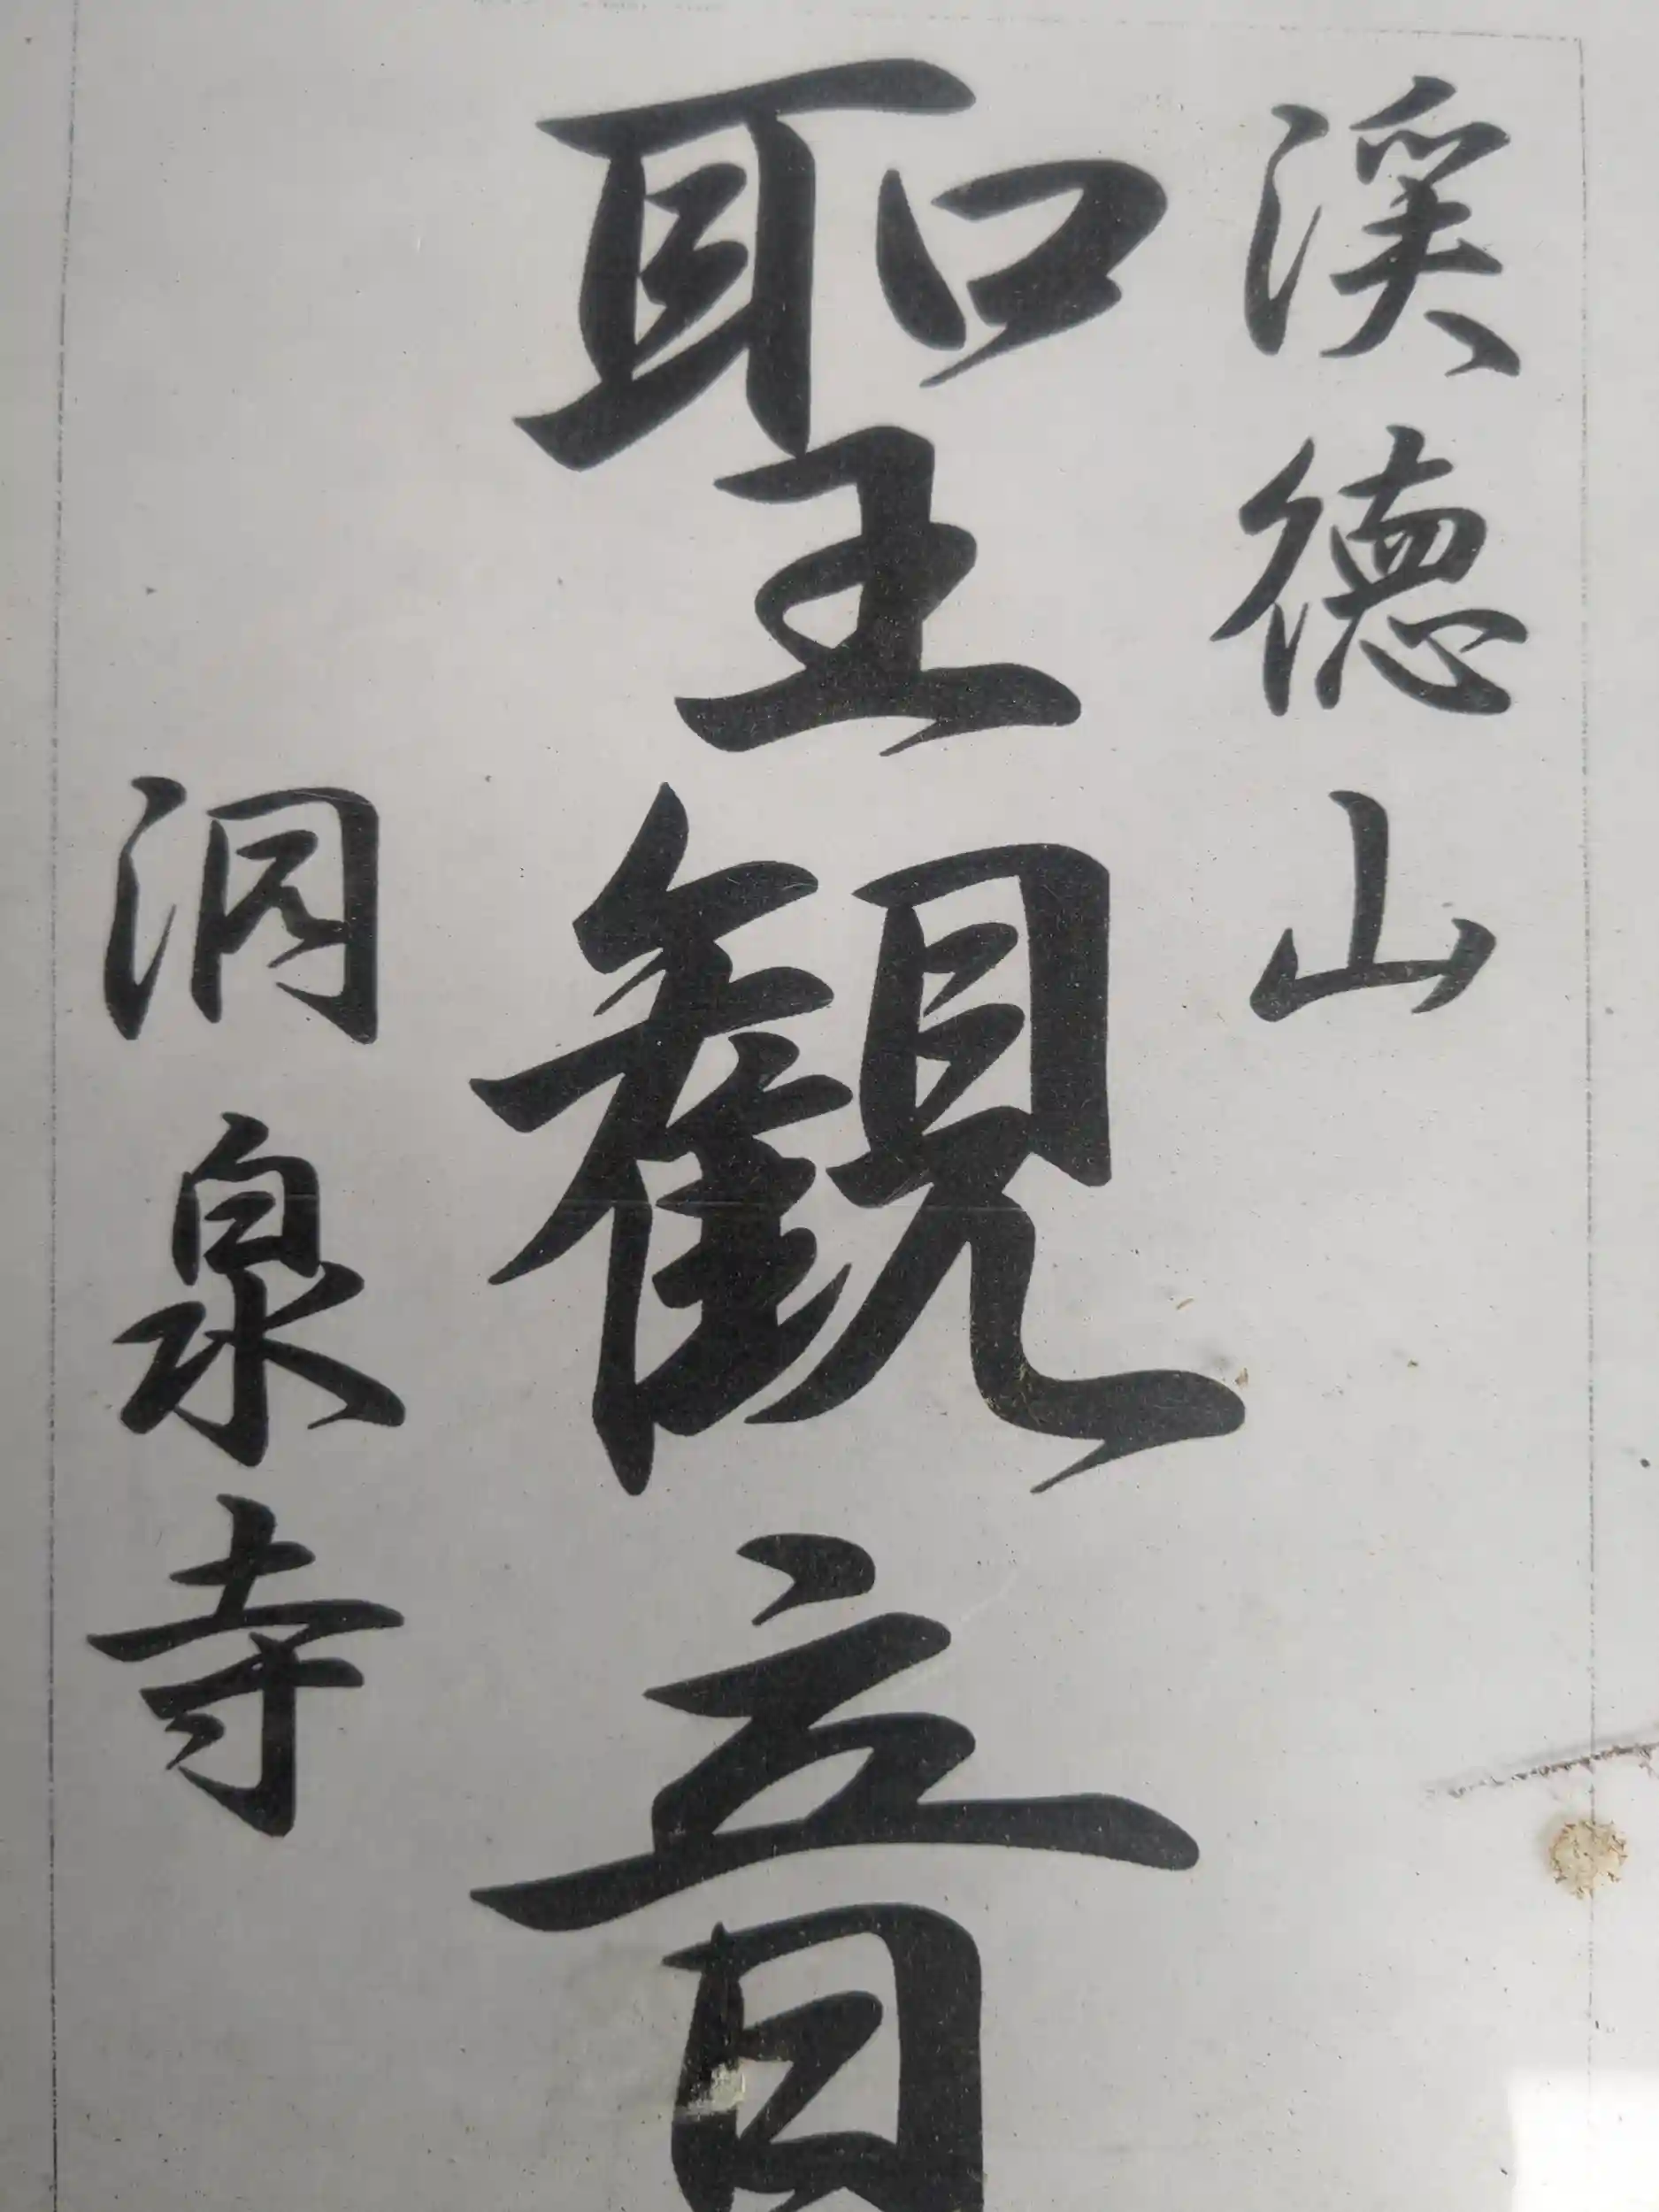 渓徳山
聖観音
洞泉寺